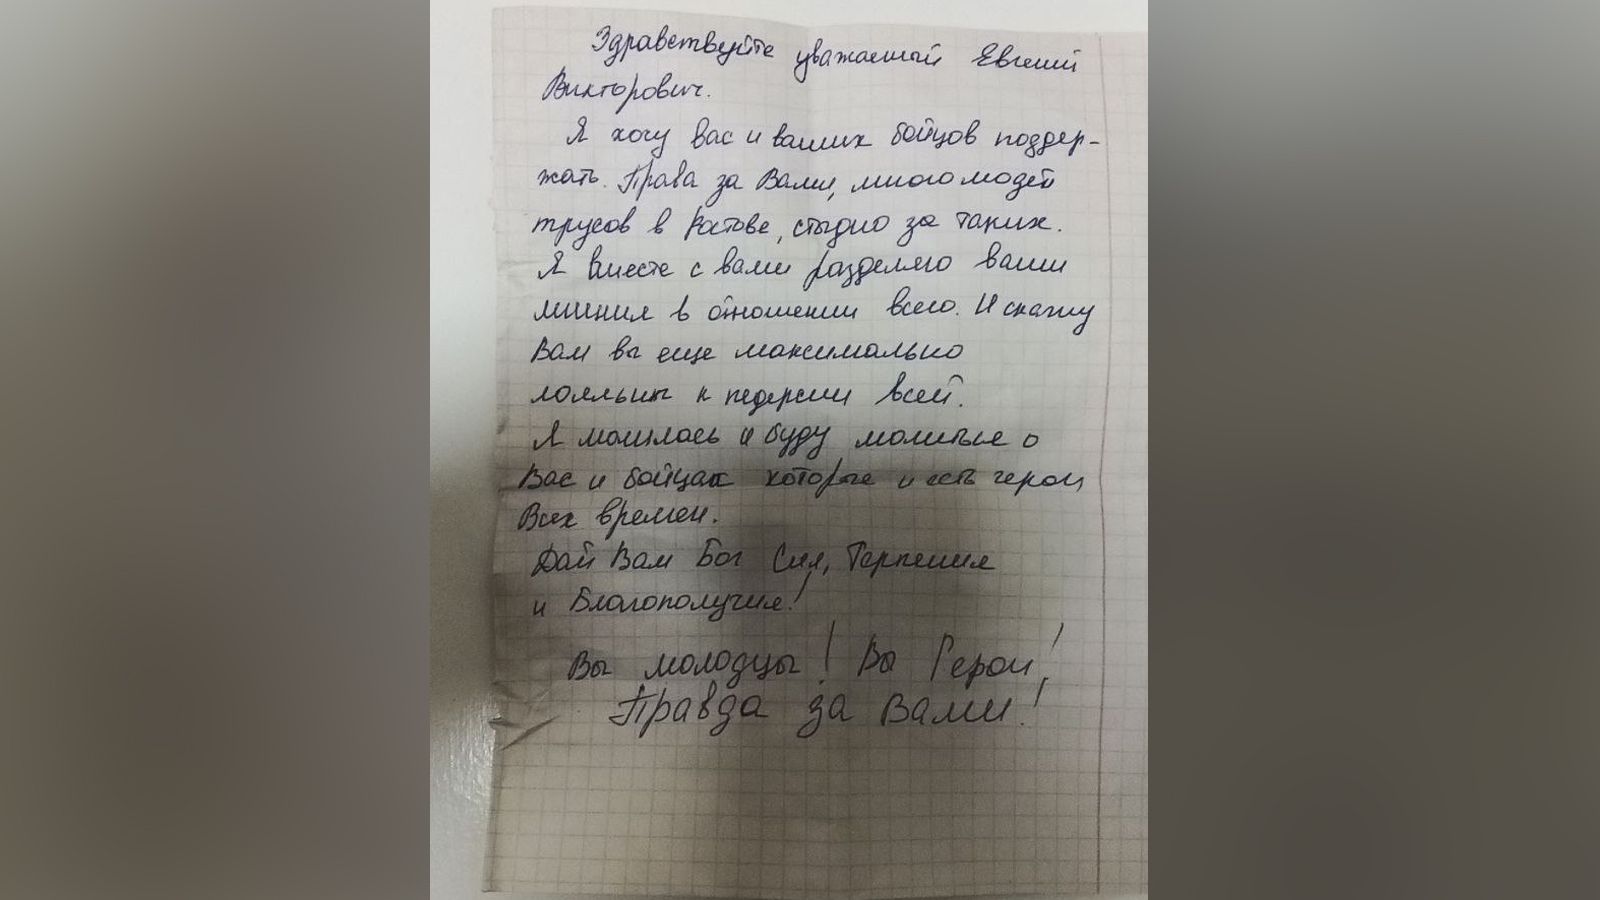 Здравствуйте уважаемый Евгений
Викторович.
Я хочу вас и ваших бойцов поддер-
жать. Права за Вами, много модей
трусов в Ростове, стыдно за таких.
Я вместе с вами разделяю ваши
мнения в отношении всего. И скажу
Вам вы еще максимально
лояльны к педерсии всей.
Я молилась и буду молиться о
Вас и бойцах которые и есть герои
Всех времен.
Дай Вам Бог Сил, Терпения
и Благополучия!
Вы молодцы! Вы Герои!
Правда за Вами!